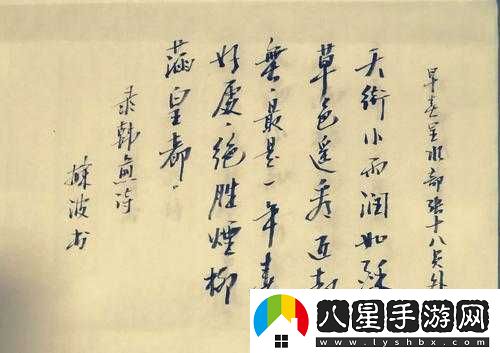 早春呈水部张十八员外
天街小雨润如酥
草色遥看近却
無。最是一年春
好處。绝胜煙柳
滿皇都。
录韩愈诗
波书
八星手游网
www.lyshbx.com